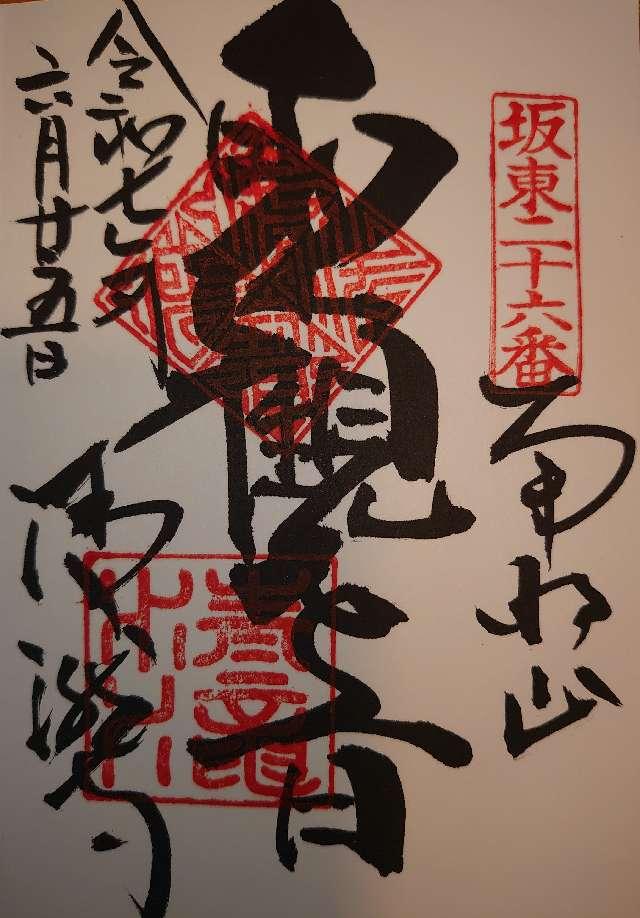 坂東二十六番
南明山
聖観世音
令和七年
六月廿五日
清瀧寺